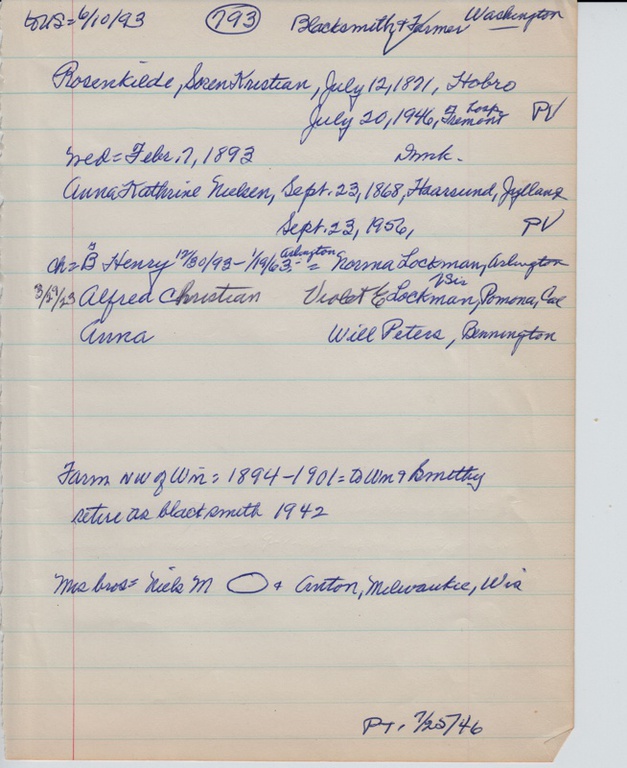 to US = 6/10/93 793 Blacksmith & Farmer Washington
Rosenkilde, Soren Kristian, July 12, 1871, Hobro
July 20, 1946, at Hosp. Fremont PV
wed = Febr. 7, 1893 Dmk.
Anna Kathrine Nielsen, Sept. 23, 1868, Haarsund, Jylland
Sept. 23, 1956, PV
ch = B Henry 12/30/93 - 1/19/63 Arlington = Norma Lockman, Arlington
3/29/23 Alfred Christian Violet E Lockman, Pomona, Cal
Anna Will Peters, Bennington
Farm NW of Wn = 1894-1901 = to Wn & Smithy
retire as blacksmith 1942
Mrs bros = Niels M & Anton, Milwaukee, Wis
PT. 7/25/46